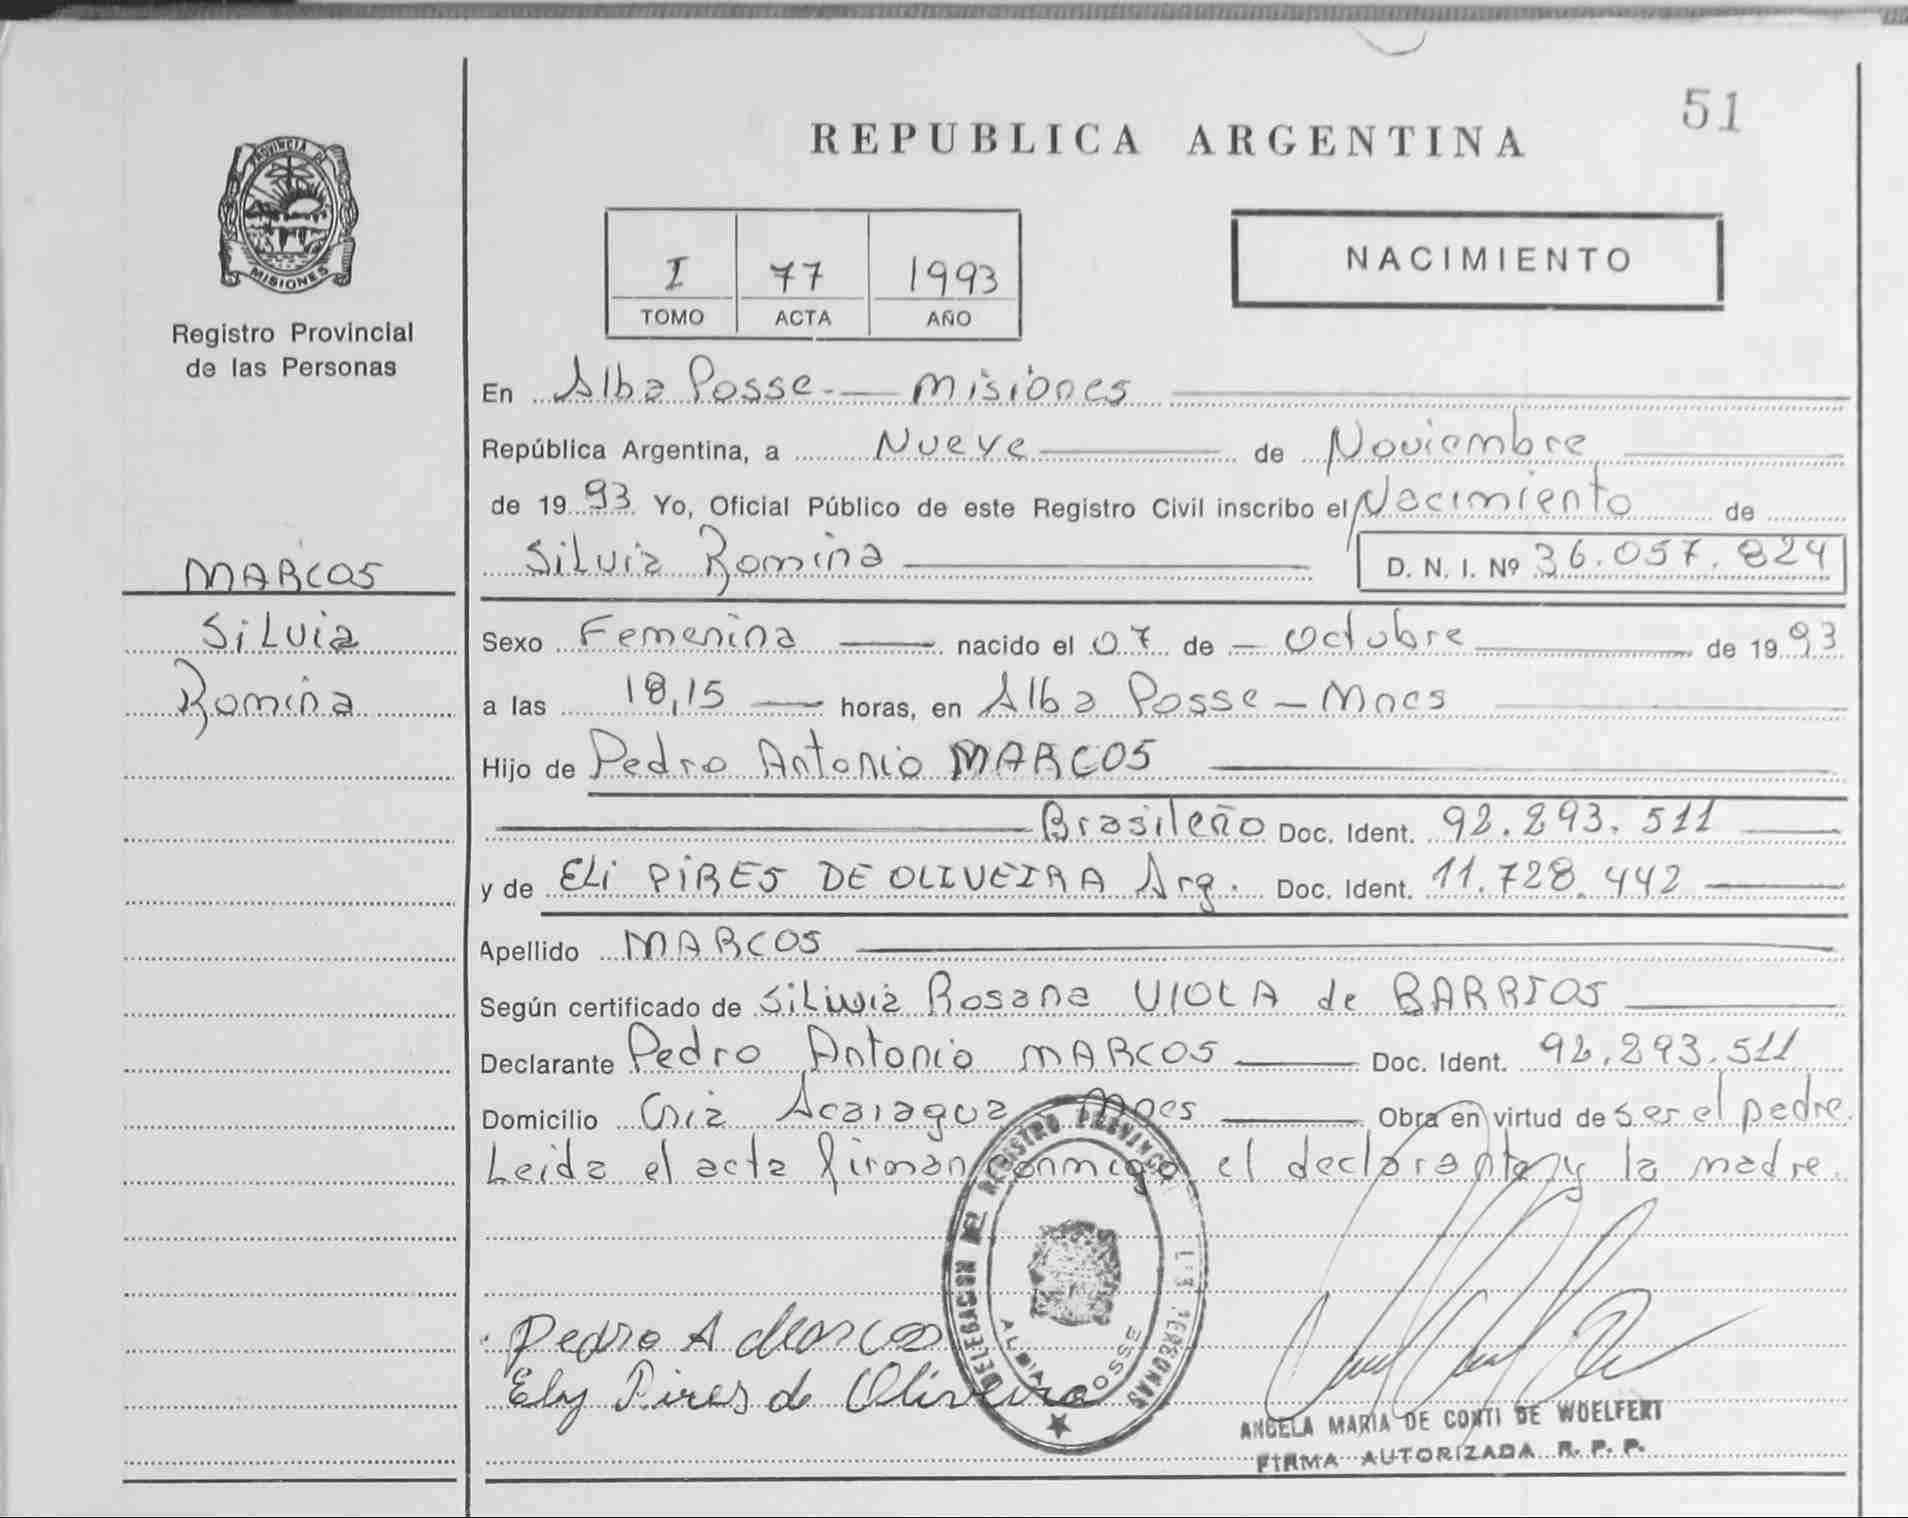 51
REPUBLICA ARGENTINA
PROVINCIA DE
MISIONES
Registro Provincial
de las Personas
I 77 1993
TOMO ACTA AÑO
NACIMIENTO
MARCOS
Silvia
Romina
En Alba Posse - Misiones
República Argentina, a Nueve de Noviembre
de 1993 Yo, Oficial Público de este Registro Civil inscribo el Nacimiento de
Silvia Romina D. N. I. Nº 36.057.824
Sexo Femenina nacido el 07 de - Octubre de 1993
a las 18,15 horas, en Alba Posse - Mnes
Hijo de Pedro Antonio MARCOS
Brasileño Doc. Ident. 92.293.511
y de ELi PiRES DE OLIVEIRA Arg. Doc. Ident. 11.728.442
Apellido MARCOS
Según certificado de Silivia Rosana VIOLA de BARRIOS
Declarante Pedro Antonio MARCOS Doc. Ident. 92.293.511
Domicilio Cnia Acaragua Mnes Obra en virtud de ser el padre.
Leida el acta firman conmigo el declarante y la madre.
DELEGACION DEL REGISTRO PROVINCIAL PERSONAS
ALBA POSSE
Pedro A Marcos
Ely Pires de Oliveira
ANGELA MARIA DE CONTI DE WOELFERT
FIRMA AUTORIZADA R. P. P.